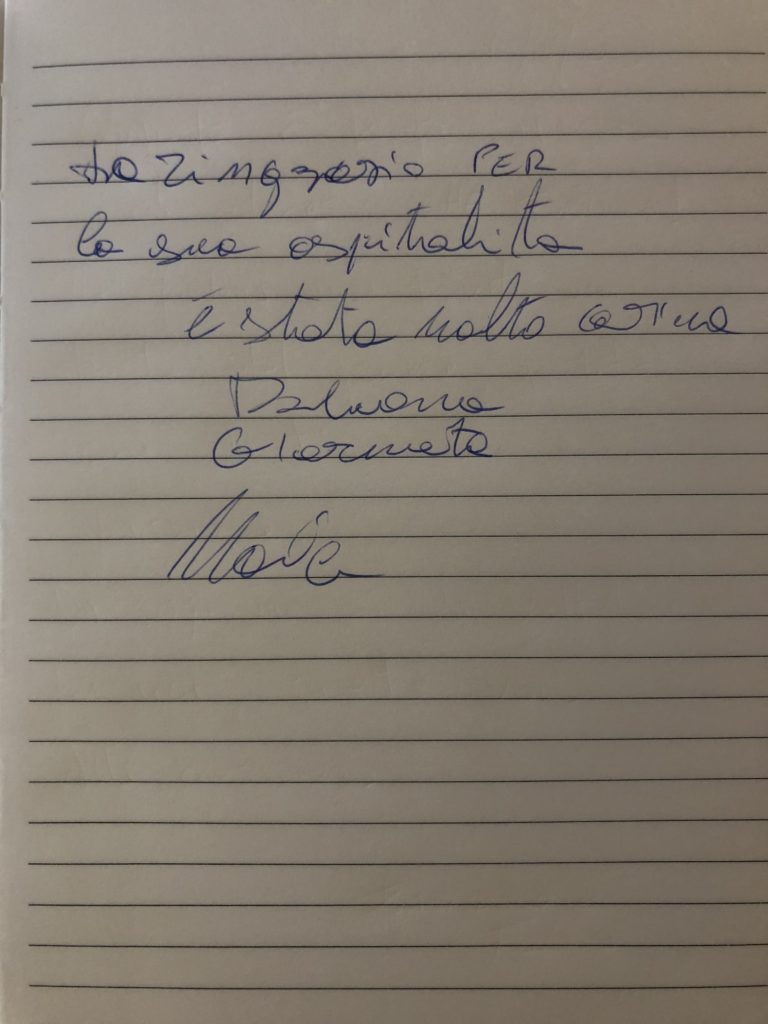 la ringrazio PER
la sua ospitalita
è stata molto carina
Buona
Giornata
Maria